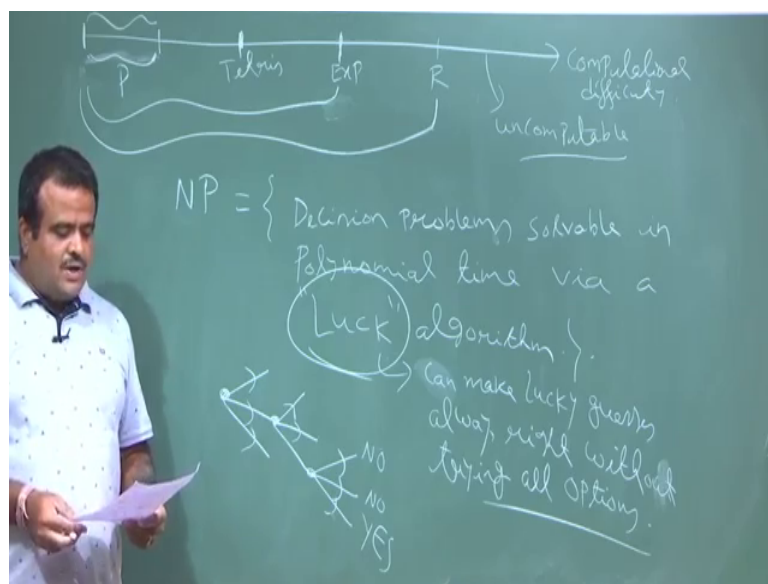 P Tetris Exp R Computational
difficulty
uncomputable
NP = { Decision problems solvable in
Polynomial time via a
"Luck" algorithm. }.
Can make lucky guesses
always right without
trying all options.
NO
NO
YES